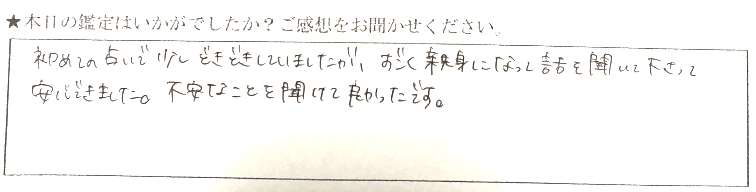 ★本日の鑑定はいかがでしたか？ご感想をお聞かせください。
初めての占いで少しどきどきしていましたが、すごく親身になって話を聞いて下さって
安心できました。不安なことを聞けて良かったです。